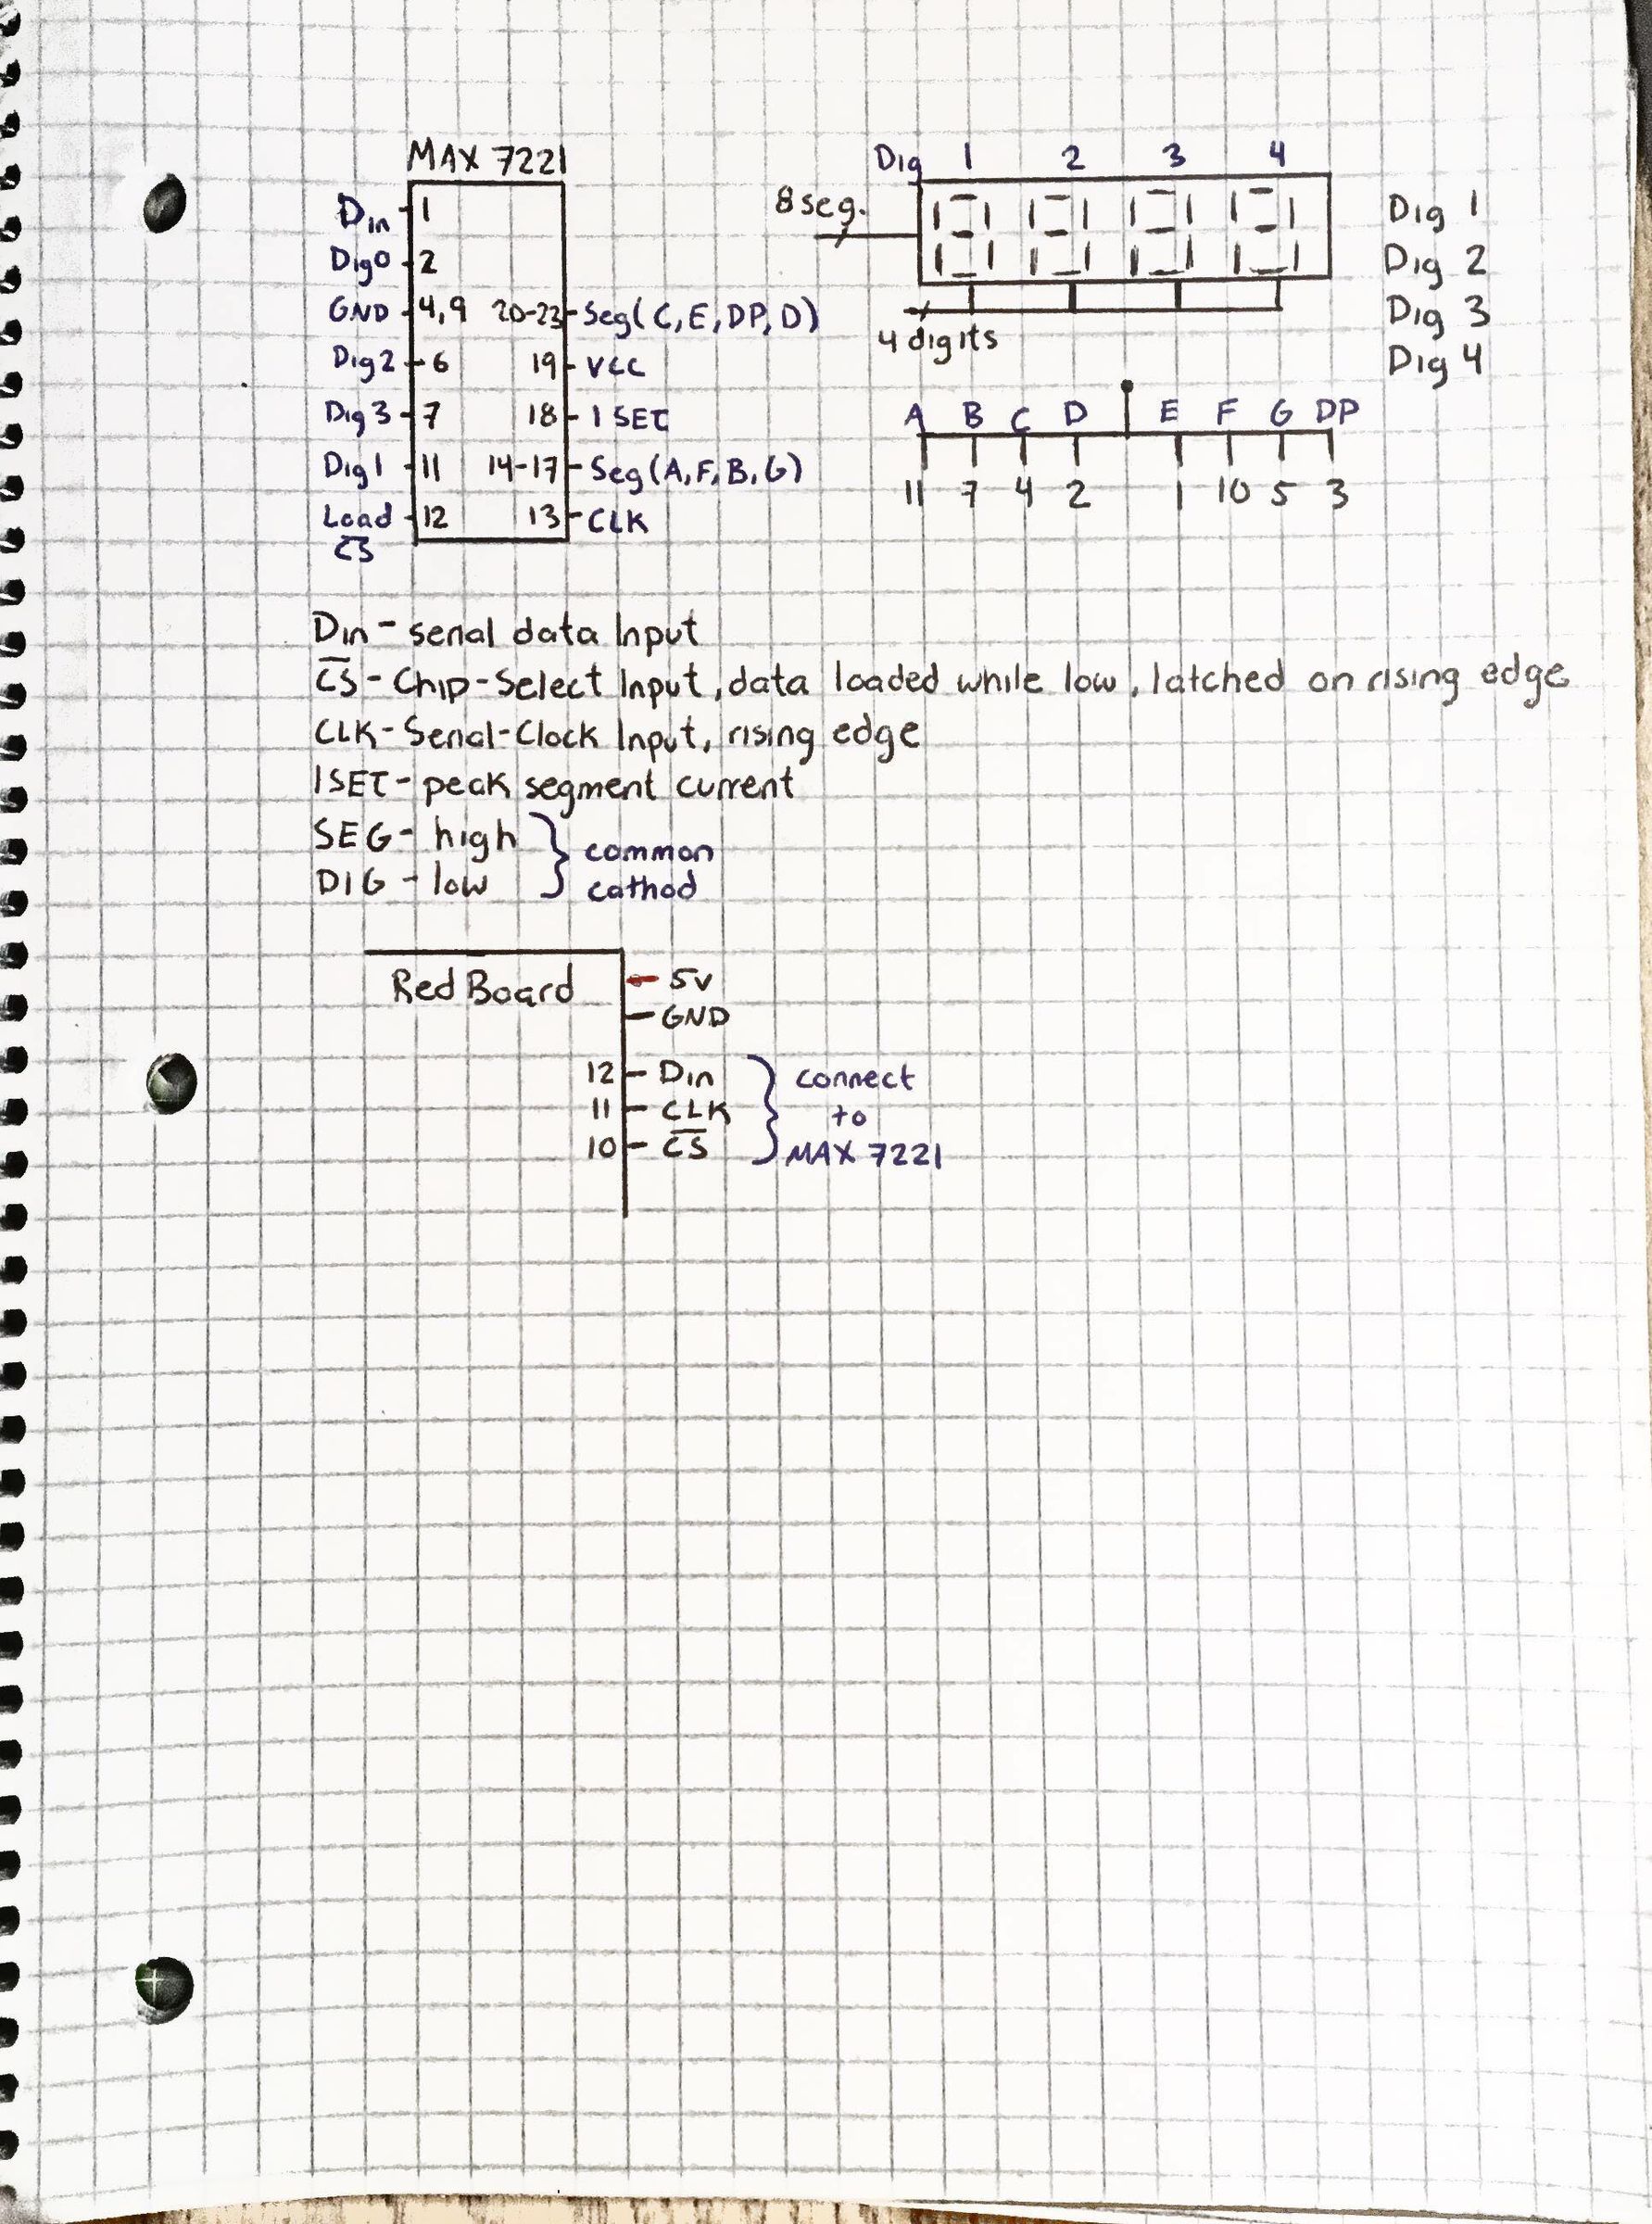 MAX 7221
Din 1
Dig0 2
GND 4,9 20-23 Seg(C,E,DP,D)
Dig2 6 19 VCC
Dig3 7 18 ISET
Dig1 11 14-17 Seg(A,F,B,G)
Load 12 13 CLK
C̅S̅
Dig 1 2 3 4
8 seg.
4 digits
Dig 1
Dig 2
Dig 3
Dig 4
A B C D E F G DP
11 7 4 2 1 10 5 3
Din - serial data Input
C̅S̅ - Chip-Select Input, data loaded while low, latched on rising edge
CLK - Serial-Clock Input, rising edge
ISET - peak segment current
SEG - high
DIG - low
common
cathod
RedBoard
5v
GND
12 Din
11 CLK
10 C̅S̅
connect
to
MAX 7221